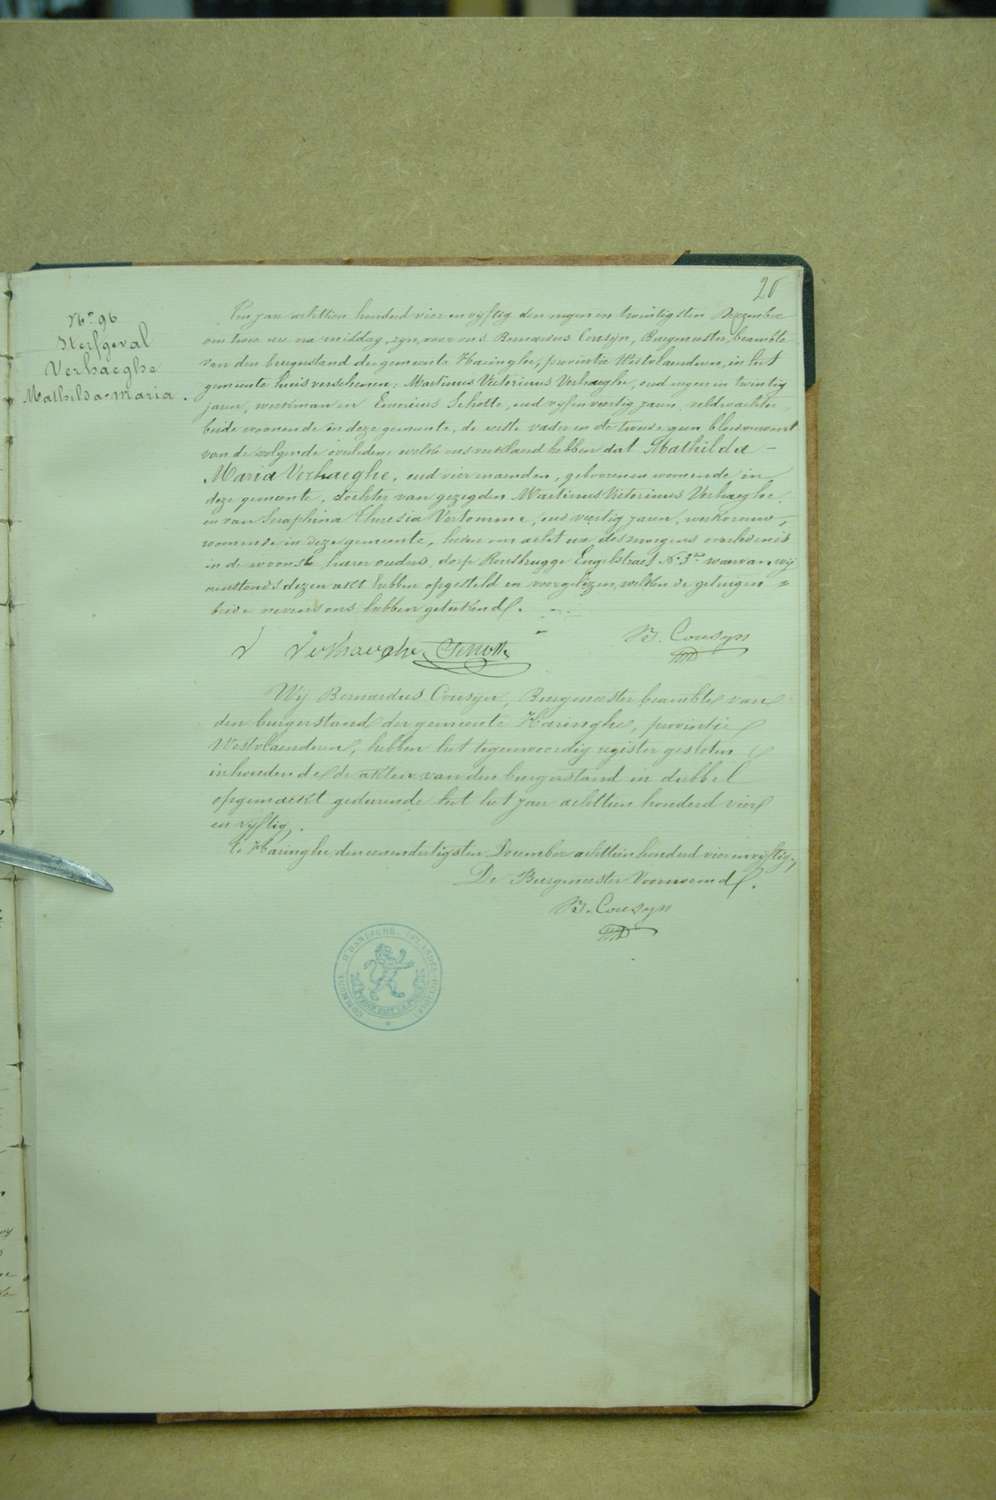 26
N.º 96
Sterfgeval
Verhaeghe
Mathilda-Maria.
Ten jare achttien honderd vier en vyftig den negen en twintigsten December
om twee ure na middag, zyn, voor ons Bernardus Cousyn, Burgmeester, beambte
van den burgerstand der gemeente Haringhe, provintie Westvlaenderen, in het
gemeente huis verschenen: Martinus Victorinus Verhaeghe, oud negen en twintig
jaren, werkman en Schotte, oud vyf en veertig jaren, veldwachter,
beide woonende in deze gemeente, de eerste vader en de tweede geen bloedverwant
van de volgende overledene welke ons verklaerd hebben dat Mathilda –
Maria Verhaeghe, oud vier maenden, geboren en woonende in
deze gemeente, dochter van gezegden Martinus Victorinus Verhaeghe,
en van Seraphina Theresia Vertomme, oud veertig jaren, werkvrouw,
woonende in deze gemeente, heden om acht ure des morgens overleden is
in de woonste harer ouders, dorp Rousbrugge Engelstraet N.º 3 waervan wy
onstends dezen akt hebben opgesteld en voorgelezen, welken de getuigen
beide nevens ons hebben geteekend.
Verhaeghe Schotte B. Cousyn
Wij Bernardus Cousyn, Burgmeester beambte van
den burgerstand der gemeente Haringhe, provintie
Westvlaenderen, hebben het tegenwoordig register gesloten
inhoudende de akten van den burgerstand in dubbel
opgemaekt gedurende het jaer achttien honderd vier
en vyftig.
Te Haringhe den eenendertigsten December achttien honderd vier en vyftig,
De Burgmeester Voornoemd.
B. Cousyn
COMMUNE D'HARINGHE